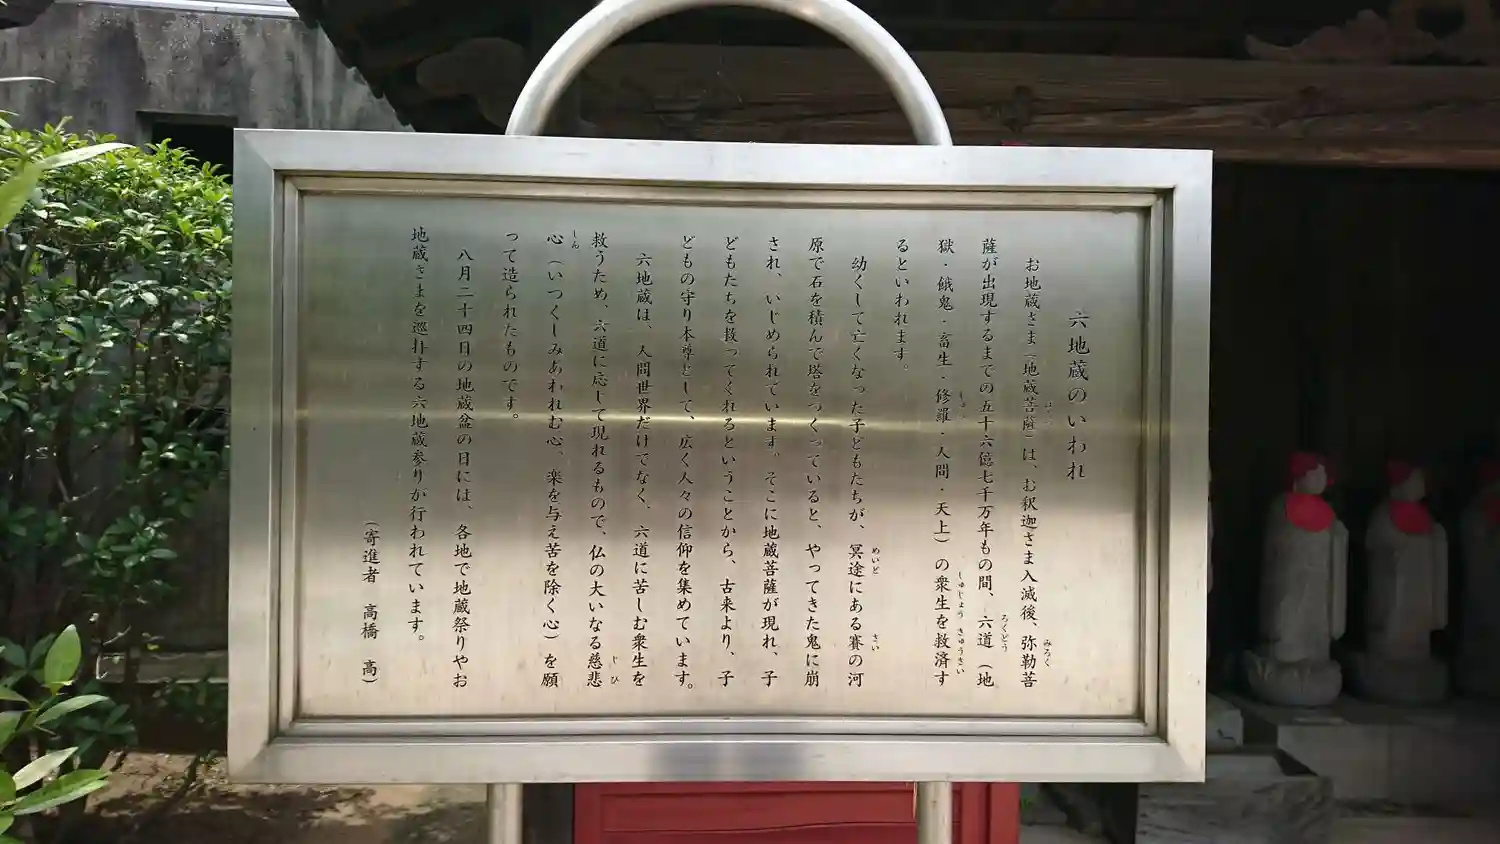 六地蔵のいわれ
お地蔵さま（地蔵菩薩）は、お釈迦さま入滅後、弥勒菩
薩が出現するまでの五十六億七千万年もの間、六道（地
獄・餓鬼・畜生・修羅・人間・天上）の衆生を救済す
るといわれます。
幼くして亡くなった子どもたちが、冥途にある賽の河
原で石を積んで塔をつくっていると、やってきた鬼に崩
され、いじめられています。そこに地蔵菩薩が現れ、子
どもたちを救ってくれるということから、古来より、子
どもの守り本尊として、広く人々の信仰を集めています。
六地蔵は、人間世界だけでなく、六道に苦しむ衆生を
救うため、六道に応じて現れるもので、仏の大いなる慈悲
心（いつくしみあわれむ心、楽を与え苦を除く心）を願
って造られたものです。
八月二十四日の地蔵盆の日には、各地で地蔵祭りやお
地蔵さまを巡拝する六地蔵参りが行われています。
（寄進者　高橋　高）